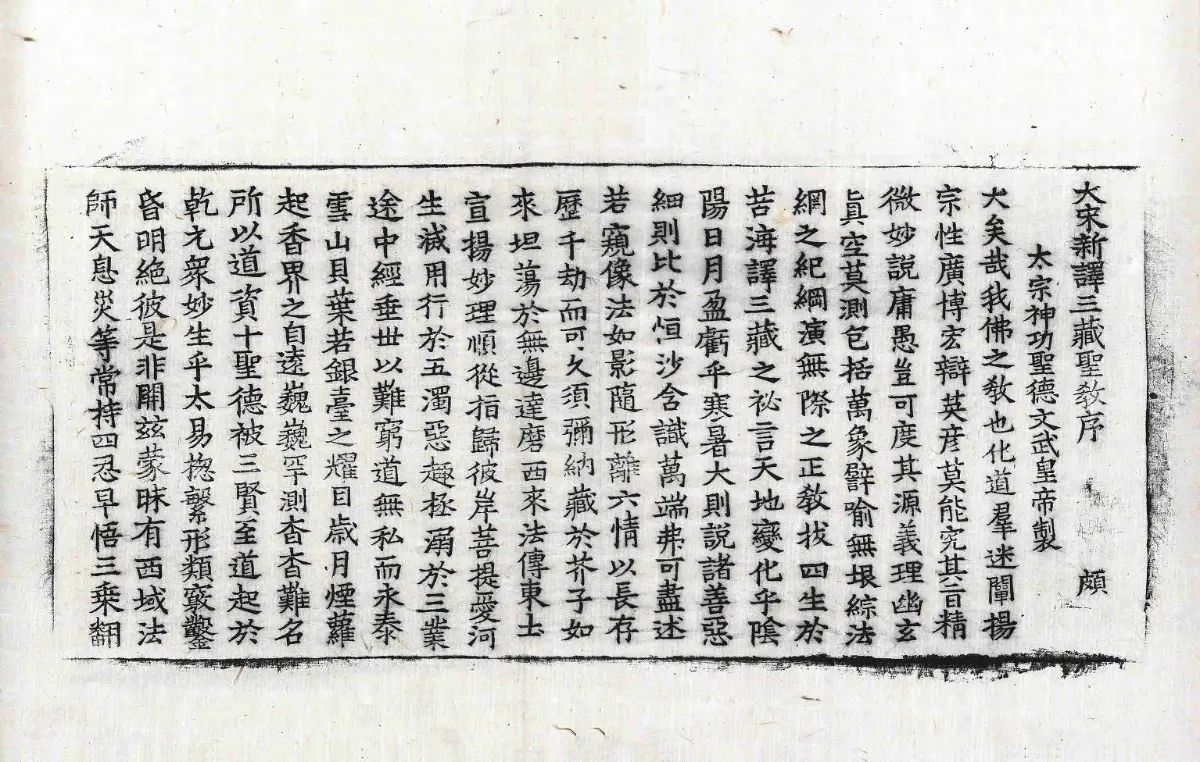 大宋新譯三藏聖敎序 頗
太宗神功聖德文武皇帝製
大矣哉我佛之敎也化道羣迷闡揚
宗性廣博宏辯英彦莫能究其旨精
微妙説庸愚豈可度其源義理幽玄
眞空莫測包括萬象譬喻無垠綜法
網之紀綱演無際之正敎拔四生於
苦海譯三藏之祕言天地變化乎陰
陽日月盈虧乎寒暑大則説諸善惡
細則比於恒沙含識萬端弗可盡述
若窺像法如影隨形離六情以長存
歷千劫而可久須彌納藏於芥子如
來坦蕩於無邊達磨西來法傳東土
宣揚妙理順從指歸彼岸菩提愛河
生滅用行於五濁惡趣拯溺於三業
途中經垂世以難窮道無私而永泰
雪山貝葉若銀臺之耀目歲月煙蘿
起香界之自遠巍巍罕測杳杳難名
所以道資十聖德被三賢至道起於
乾元衆妙生乎太易揔繫形類竅鑿
昏明絶彼是非開兹蒙昧有西域法
師天息災等常持四忍早悟三乗翻